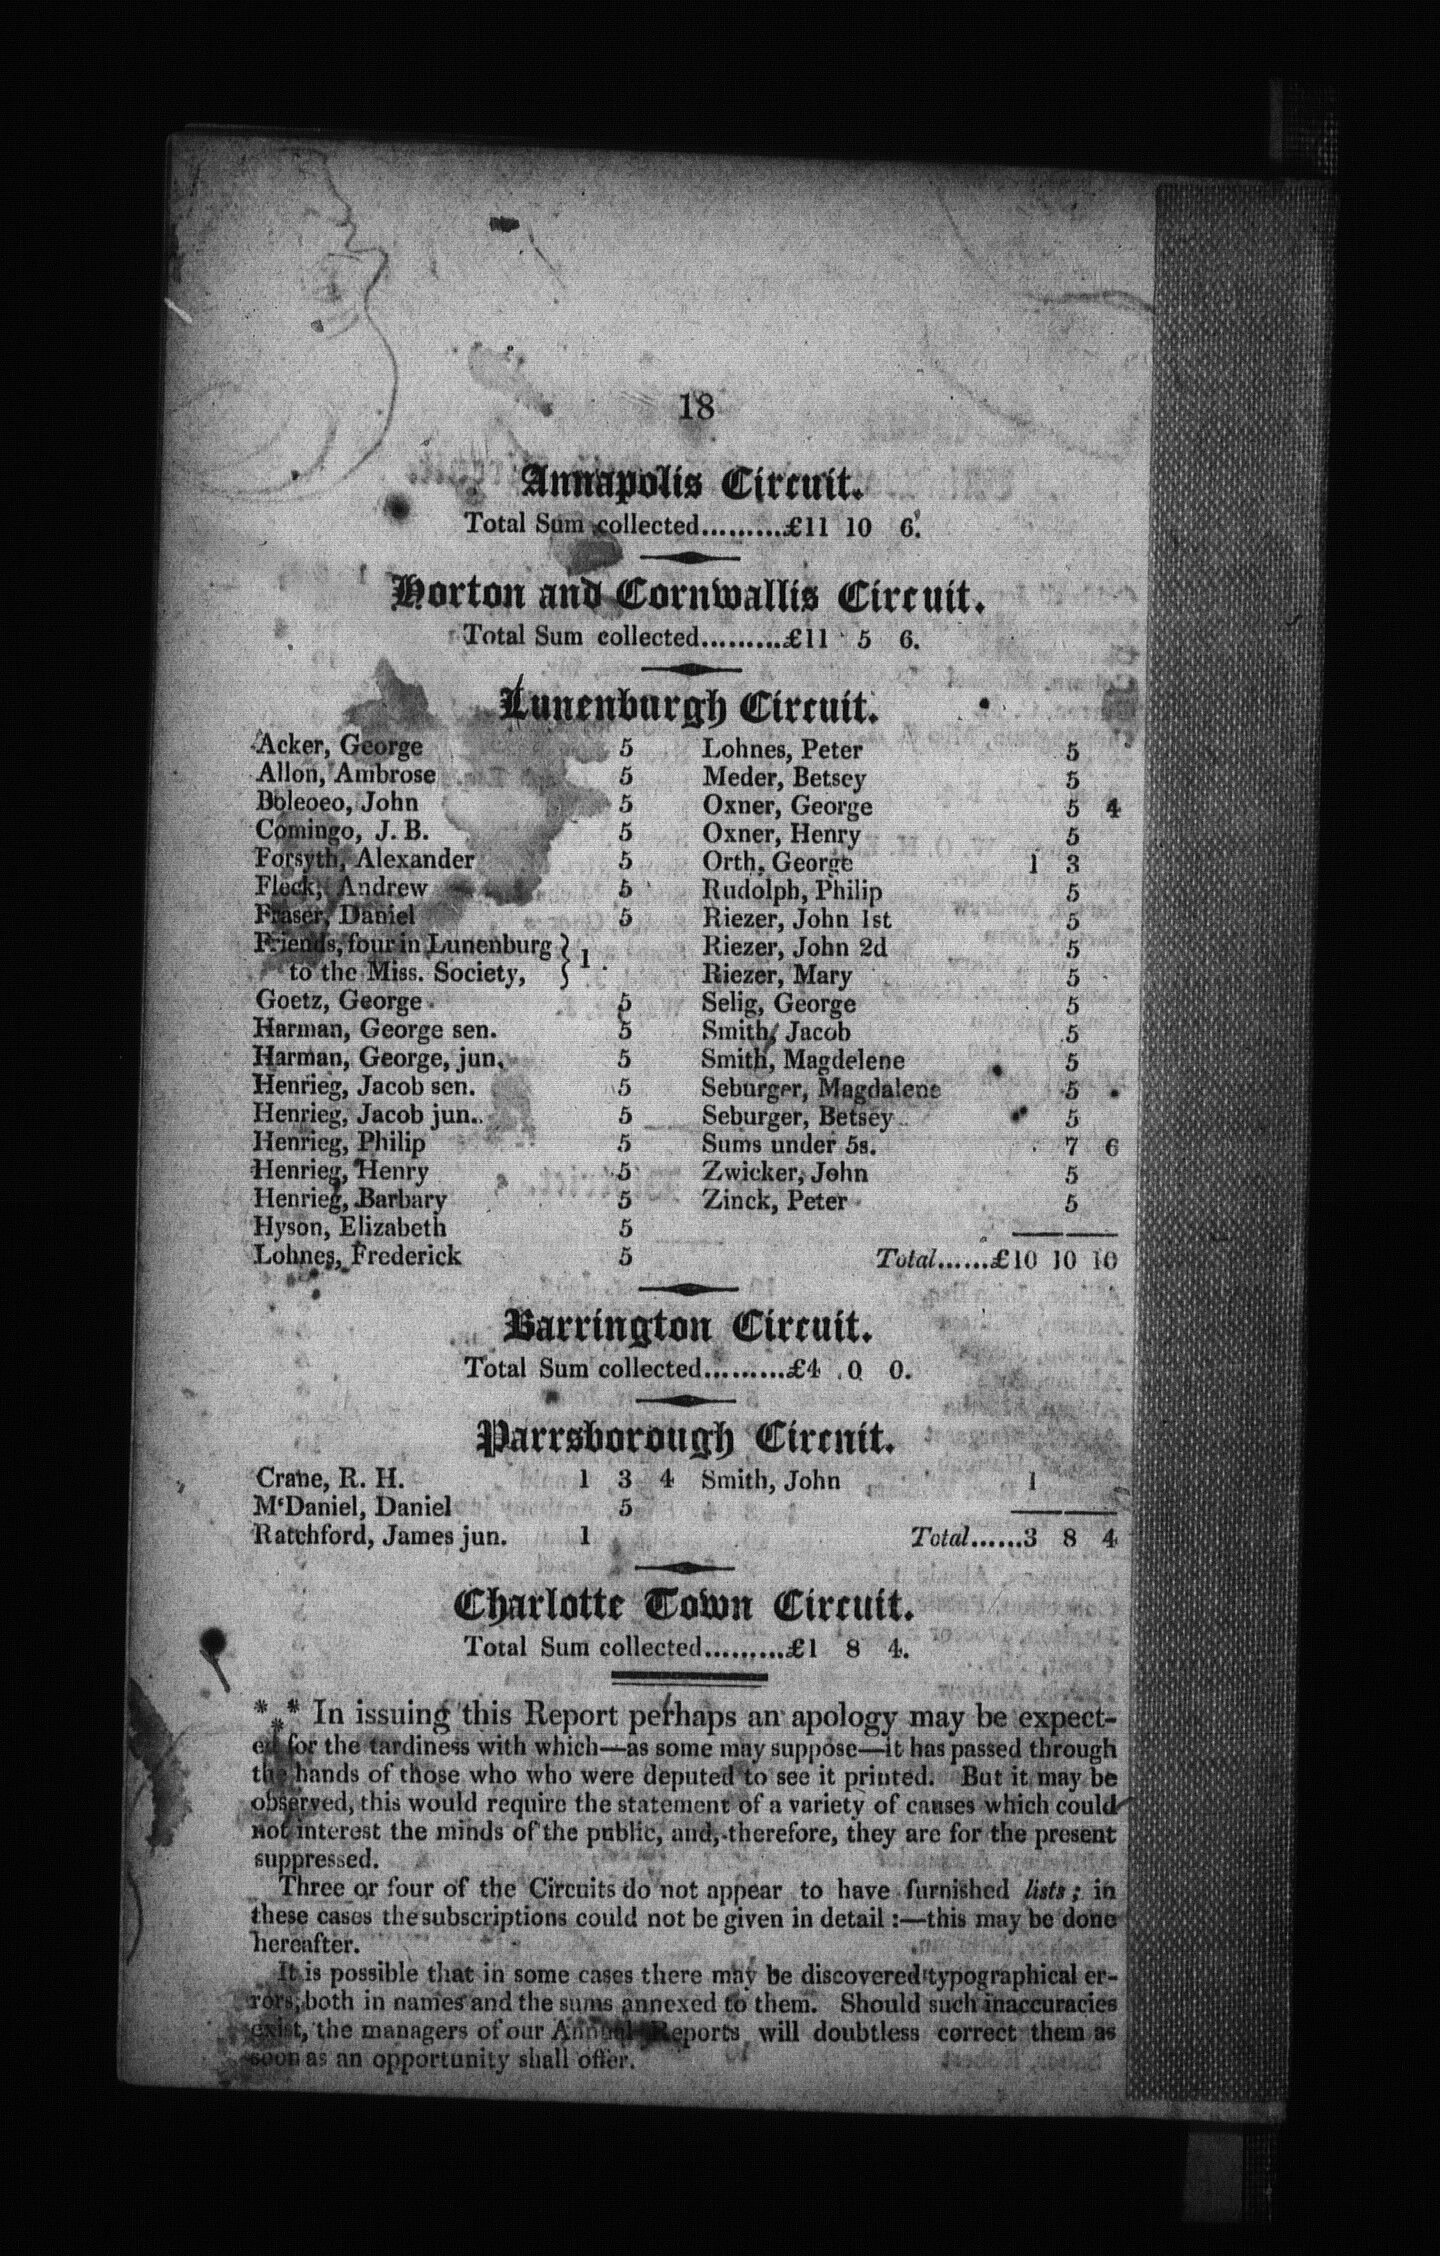 18
Annapolis Circuit.
Total Sum collected.........£11 10 6.
Horton and Cornwallis Circuit.
Total Sum collected.........£11 5 6.
Lunenburgh Circuit.
Acker, George 5
Allon, Ambrose 5
Boleoeo, John 5
Comingo, J. B. 5
Forsyth, Alexander 5
Fleck, Andrew 5
Fraser, Daniel 5
Friends, four in Lunenburg
to the Miss. Society, } 1
Goetz, George 5
Harman, George sen. 5
Harman, George, jun. 5
Henrieg, Jacob sen. 5
Henrieg, Jacob jun. 5
Henrieg, Philip 5
Henrieg, Henry 5
Henrieg, Barbary 5
Hyson, Elizabeth 5
Lohnes, Frederick 5
Lohnes, Peter 5
Meder, Betsey 5
Oxner, George 5 4
Oxner, Henry 5
Orth, George 1 3
Rudolph, Philip 5
Riezer, John 1st 5
Riezer, John 2d 5
Riezer, Mary 5
Selig, George 5
Smith, Jacob 5
Smith, Magdelene 5
Seburger, Magdalene 5
Seburger, Betsey 5
Sums under 5s. 7 6
Zwicker, John 5
Zinck, Peter 5
Total......£10 10 10
Barrington Circuit.
Total Sum collected.........£4 0 0.
Parrsborough Circuit.
Crane, R. H. 1 3 4
M'Daniel, Daniel 5
Ratchford, James jun. 1
Smith, John 1
Total......3 8 4
Charlotte Town Circuit.
Total Sum collected.........£1 8 4.
*** In issuing this Report perhaps an apology may be expect-
ed for the tardiness with which—as some may suppose—it has passed through
the hands of those who who were deputed to see it printed. But it may be
observed, this would require the statement of a variety of causes which could
not interest the minds of the public, and, therefore, they are for the present
suppressed.
Three or four of the Circuits do not appear to have furnished lists; in
these cases the subscriptions could not be given in detail:—this may be done
hereafter.
It is possible that in some cases there may be discovered typographical er-
rors, both in names and the sums annexed to them. Should such inaccuracies
exist, the managers of our Annual Reports will doubtless correct them as
soon as an opportunity shall offer.